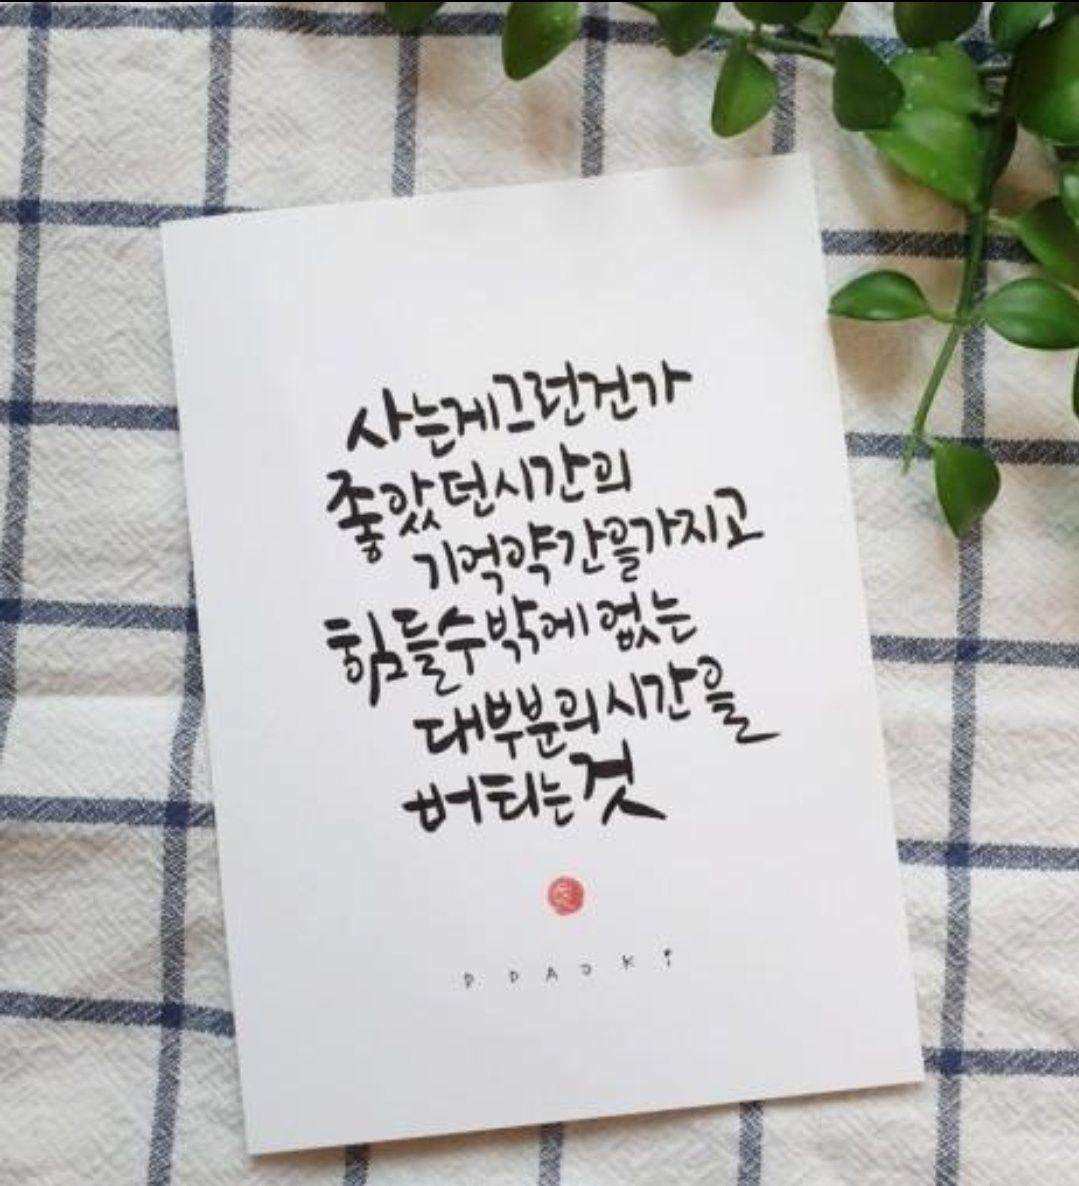 사는게그런건가
좋았던시간의
기억약간을가지고
힘들수밖에없는
대부분의시간을
버티는것
DDAJKI